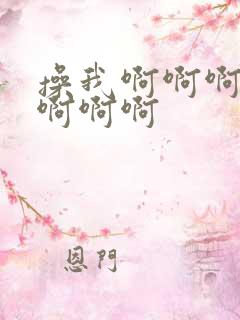 操我 啊啊啊
啊啊啊
恩門